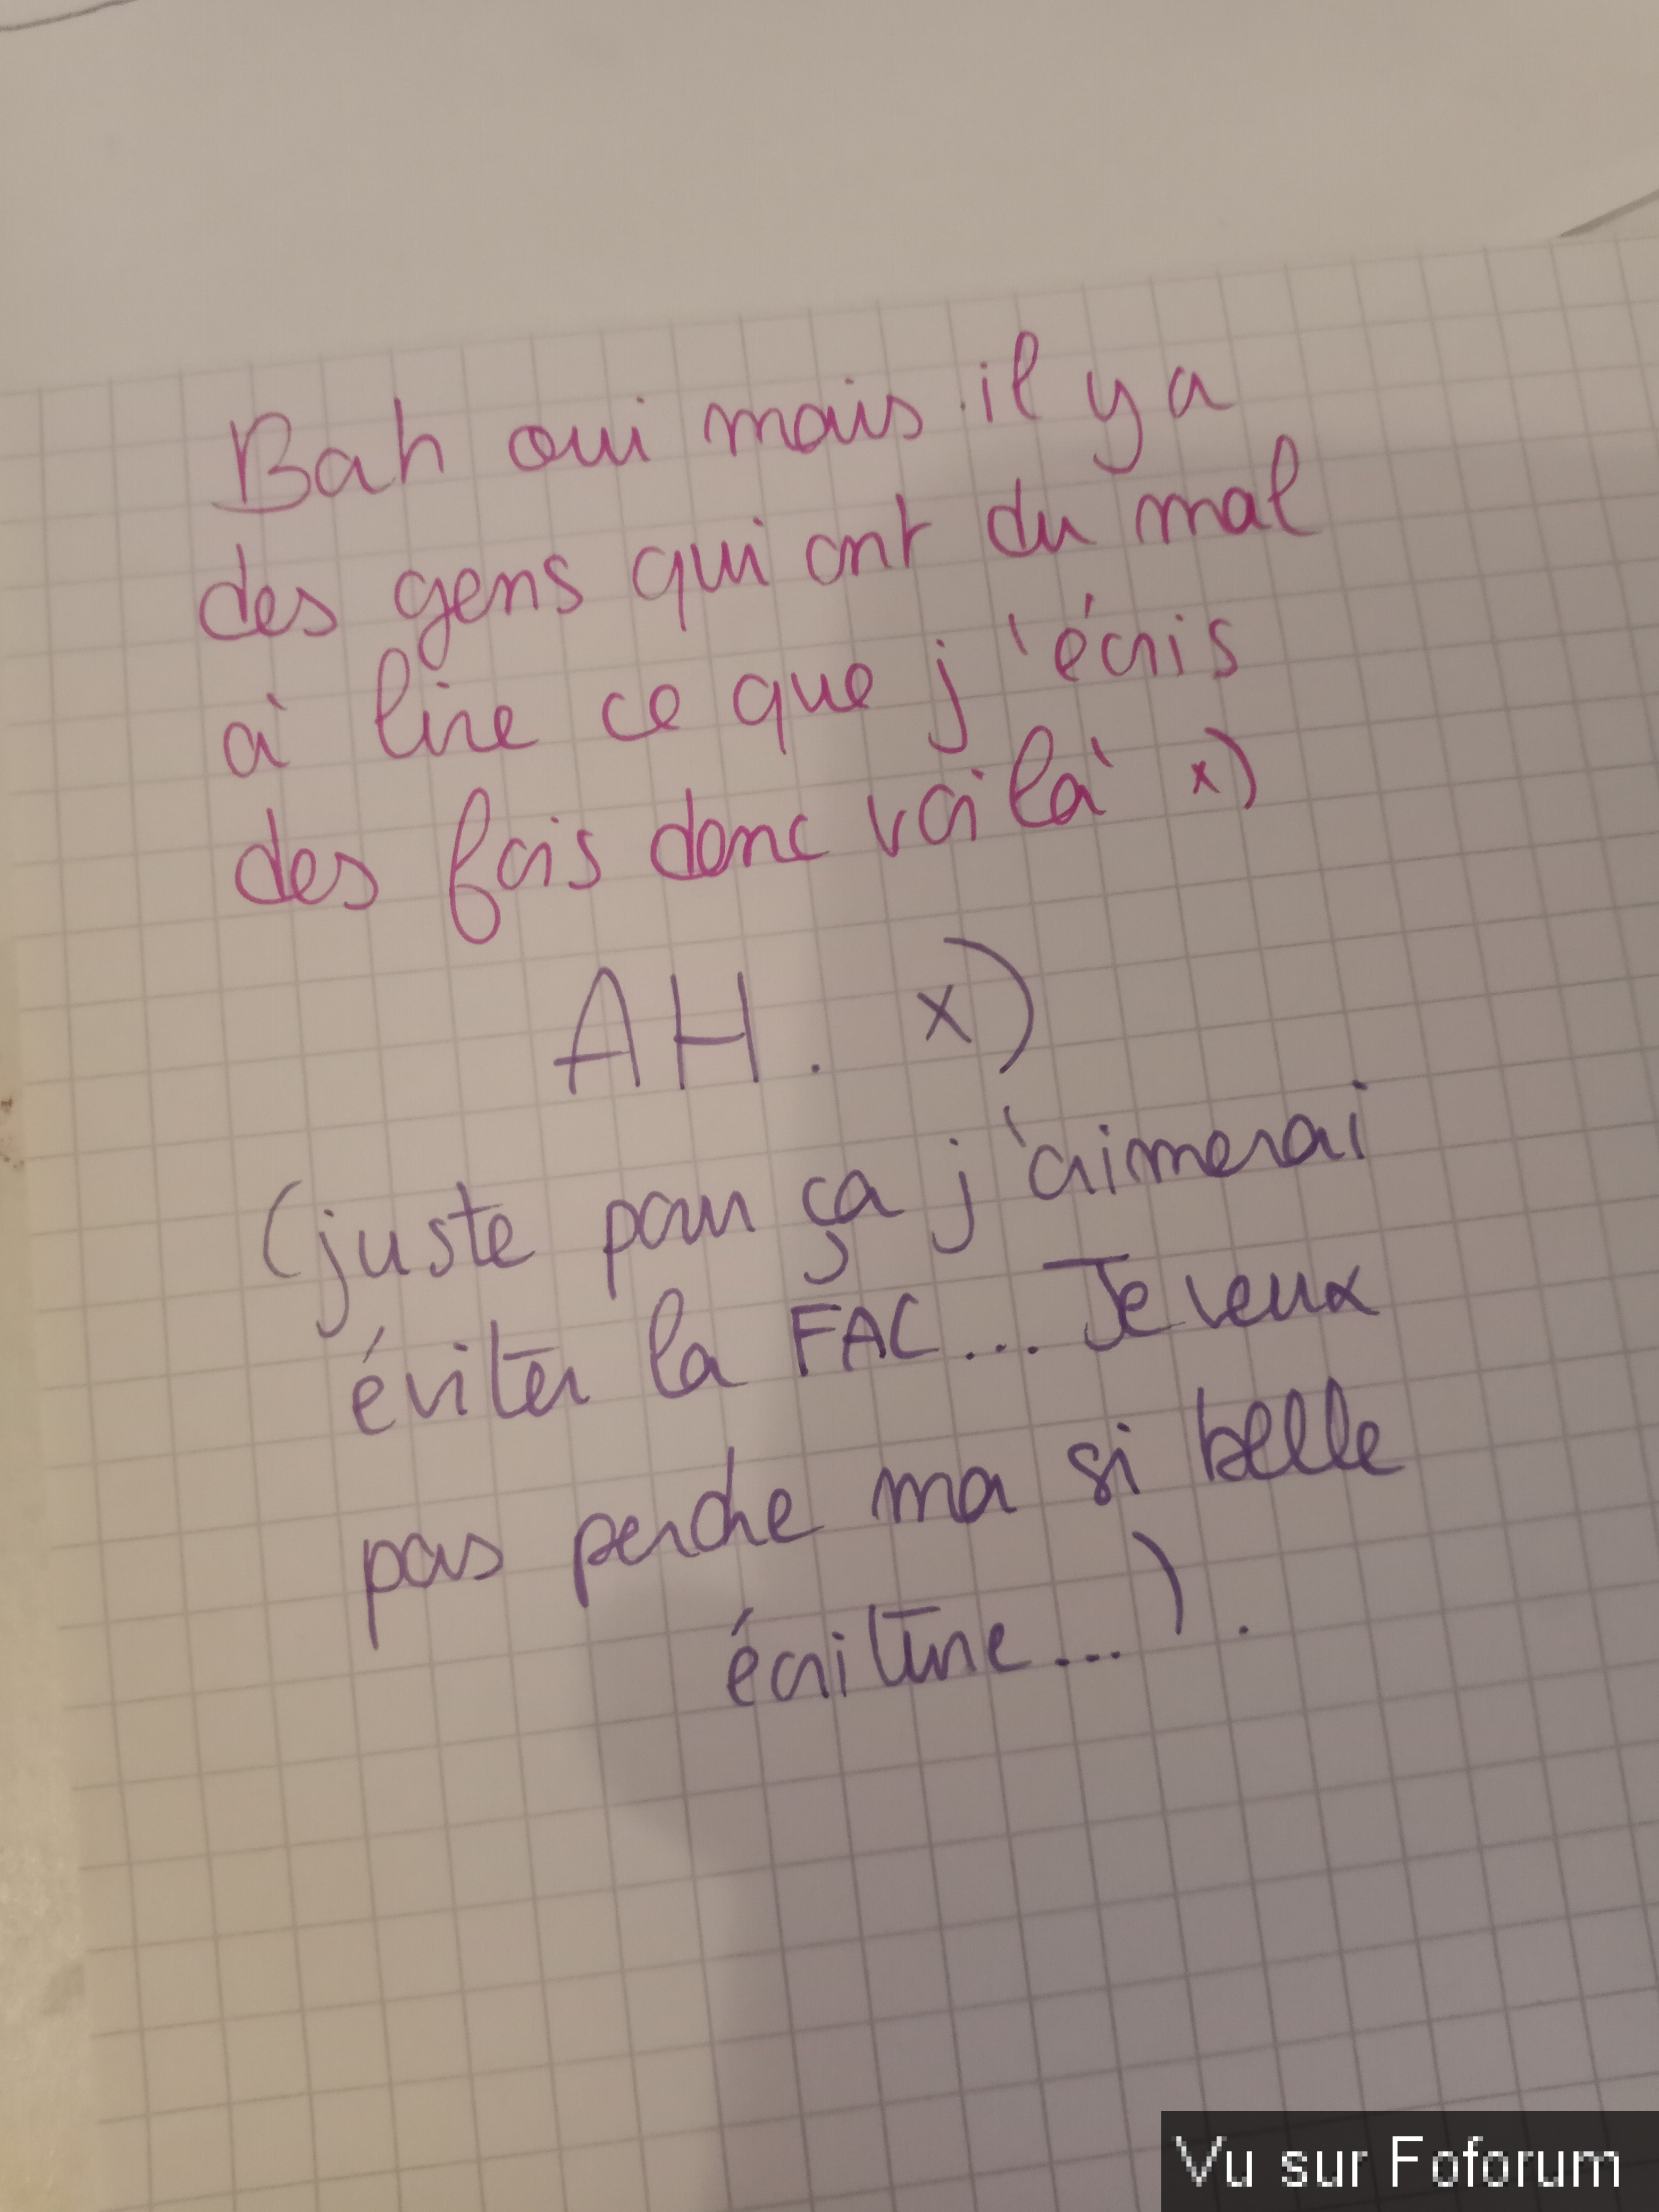 Bah oui mais il y a
des gens qui ont du mal
à lire ce que j'écris
des fois donc voilà x)
AH. x)
(juste pour ça j'aimerai
éviter la FAC... Je veux
pas perdre ma si belle
écriture...).
Vu sur Foforum